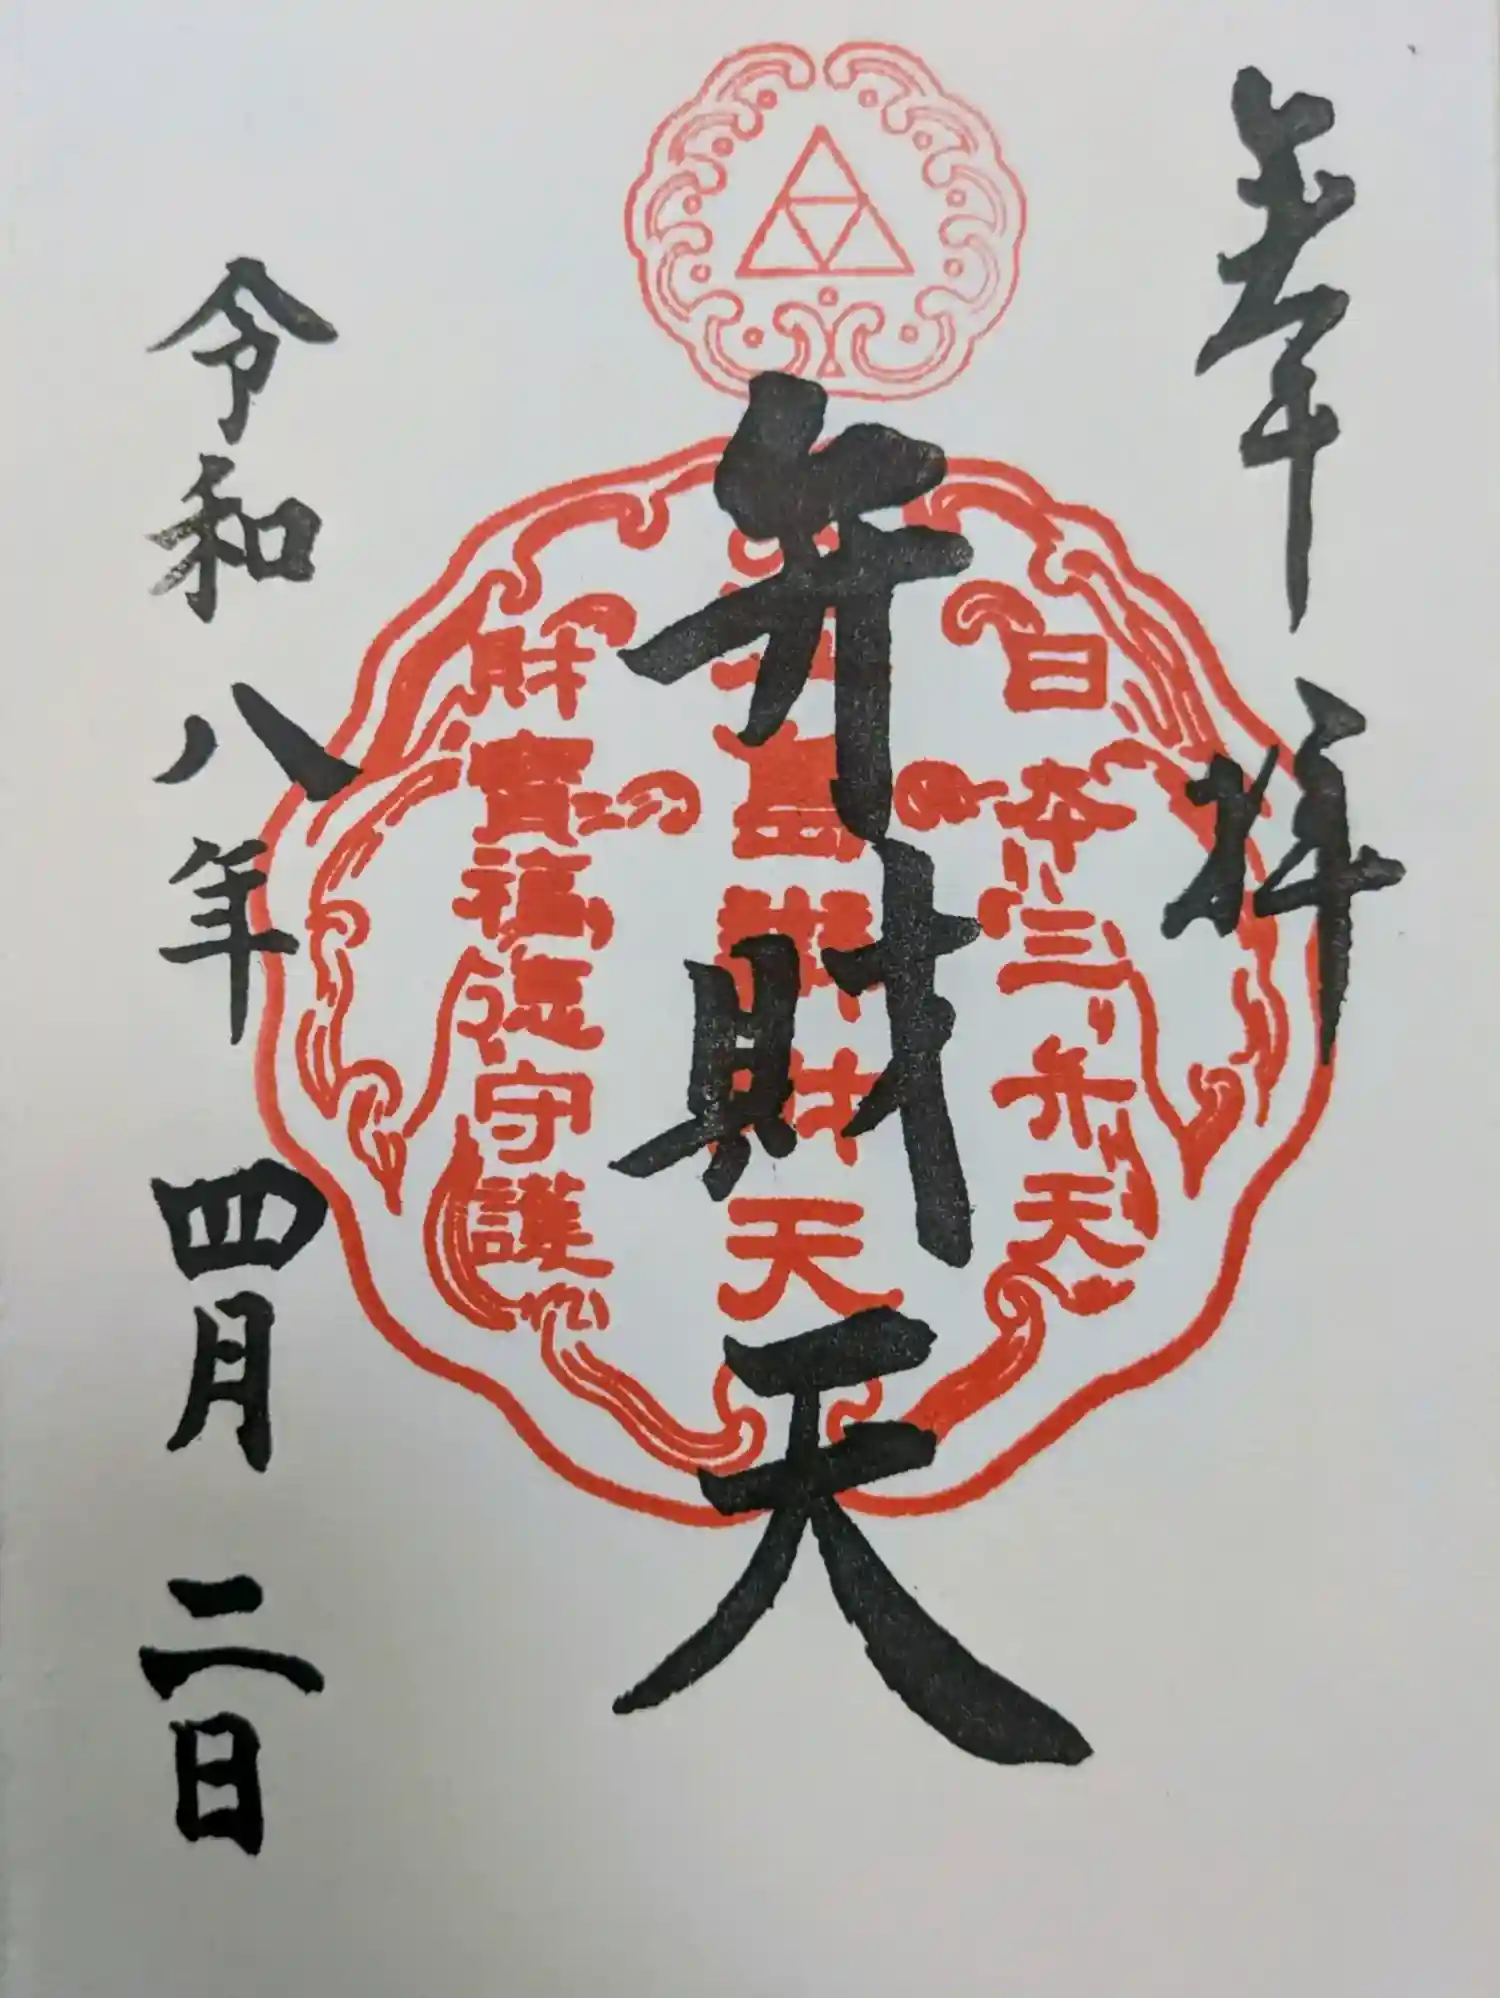 奉拝
日本三弁天
島辨財天
財寳福徳守護
弁財天
令和八年四月二日